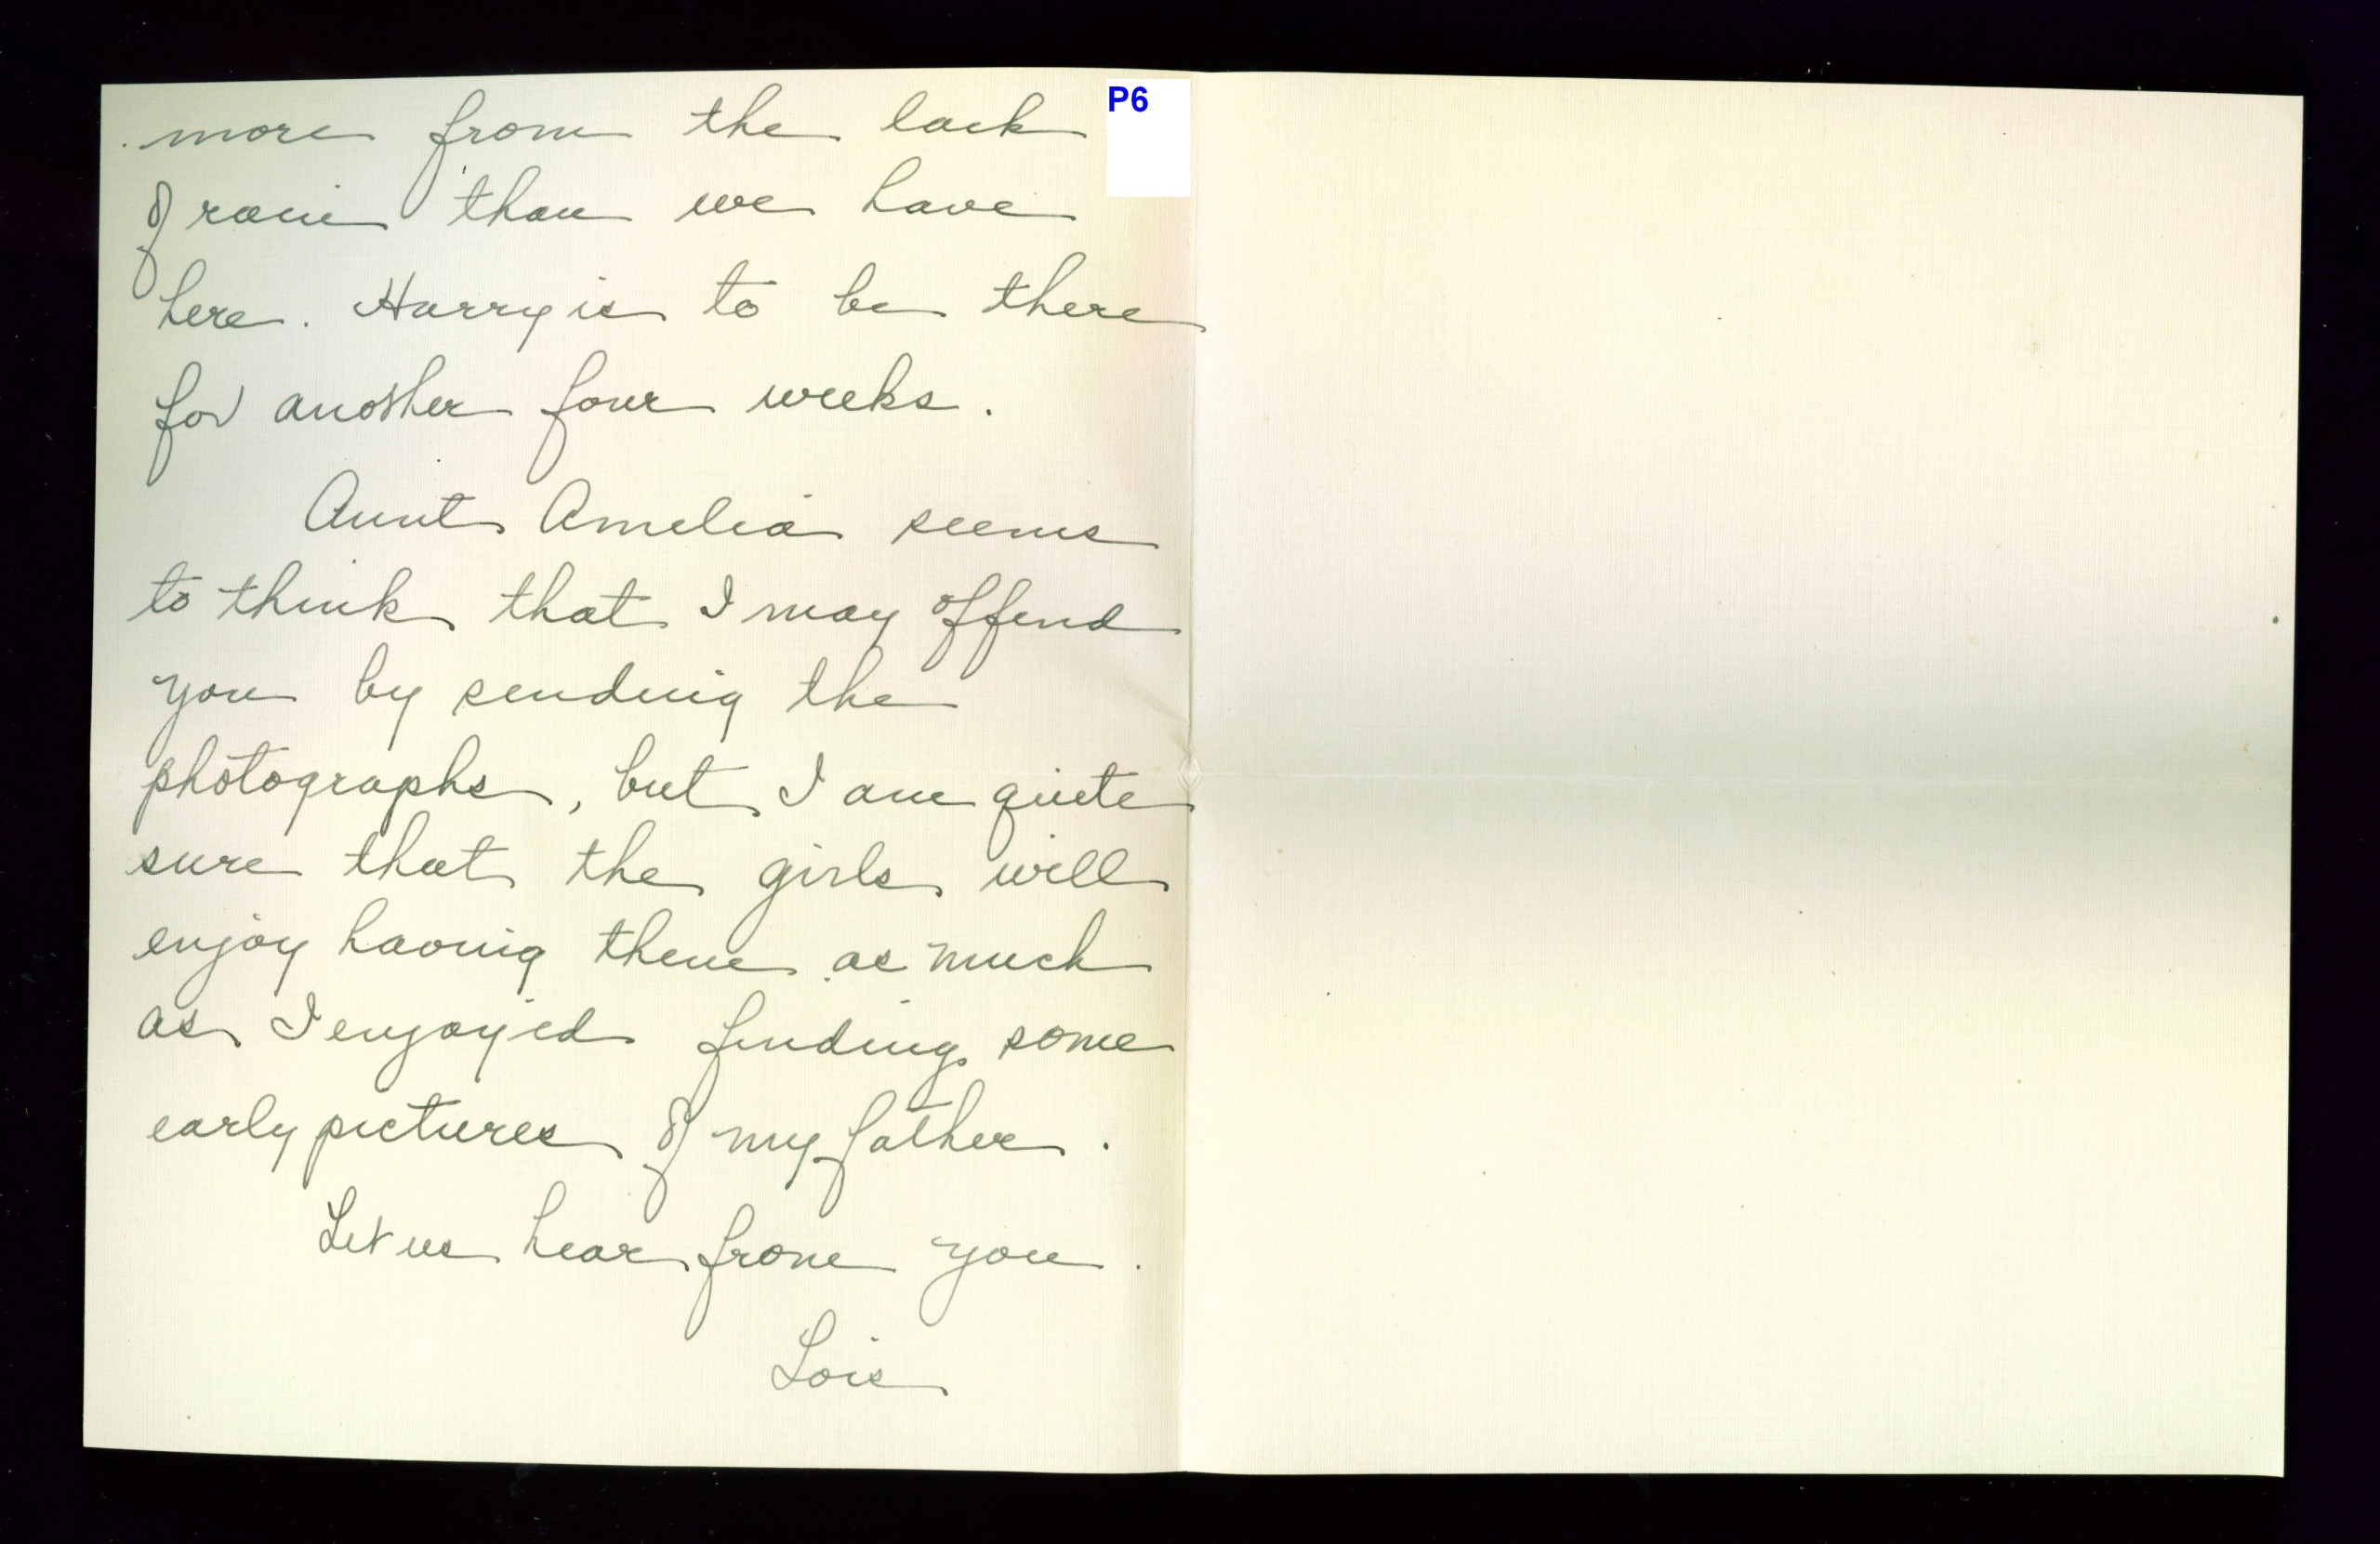 P6
more from the lack
of rain than we have
here. Harry is to be there
for another four weeks.
Aunt Amelia seems
to think that I may offend
you by sending the
photographs, but I am quite
sure that the girls will
enjoy having them as much
as I enjoyed finding some
early pictures of my father.
Let us hear from you.
Lois